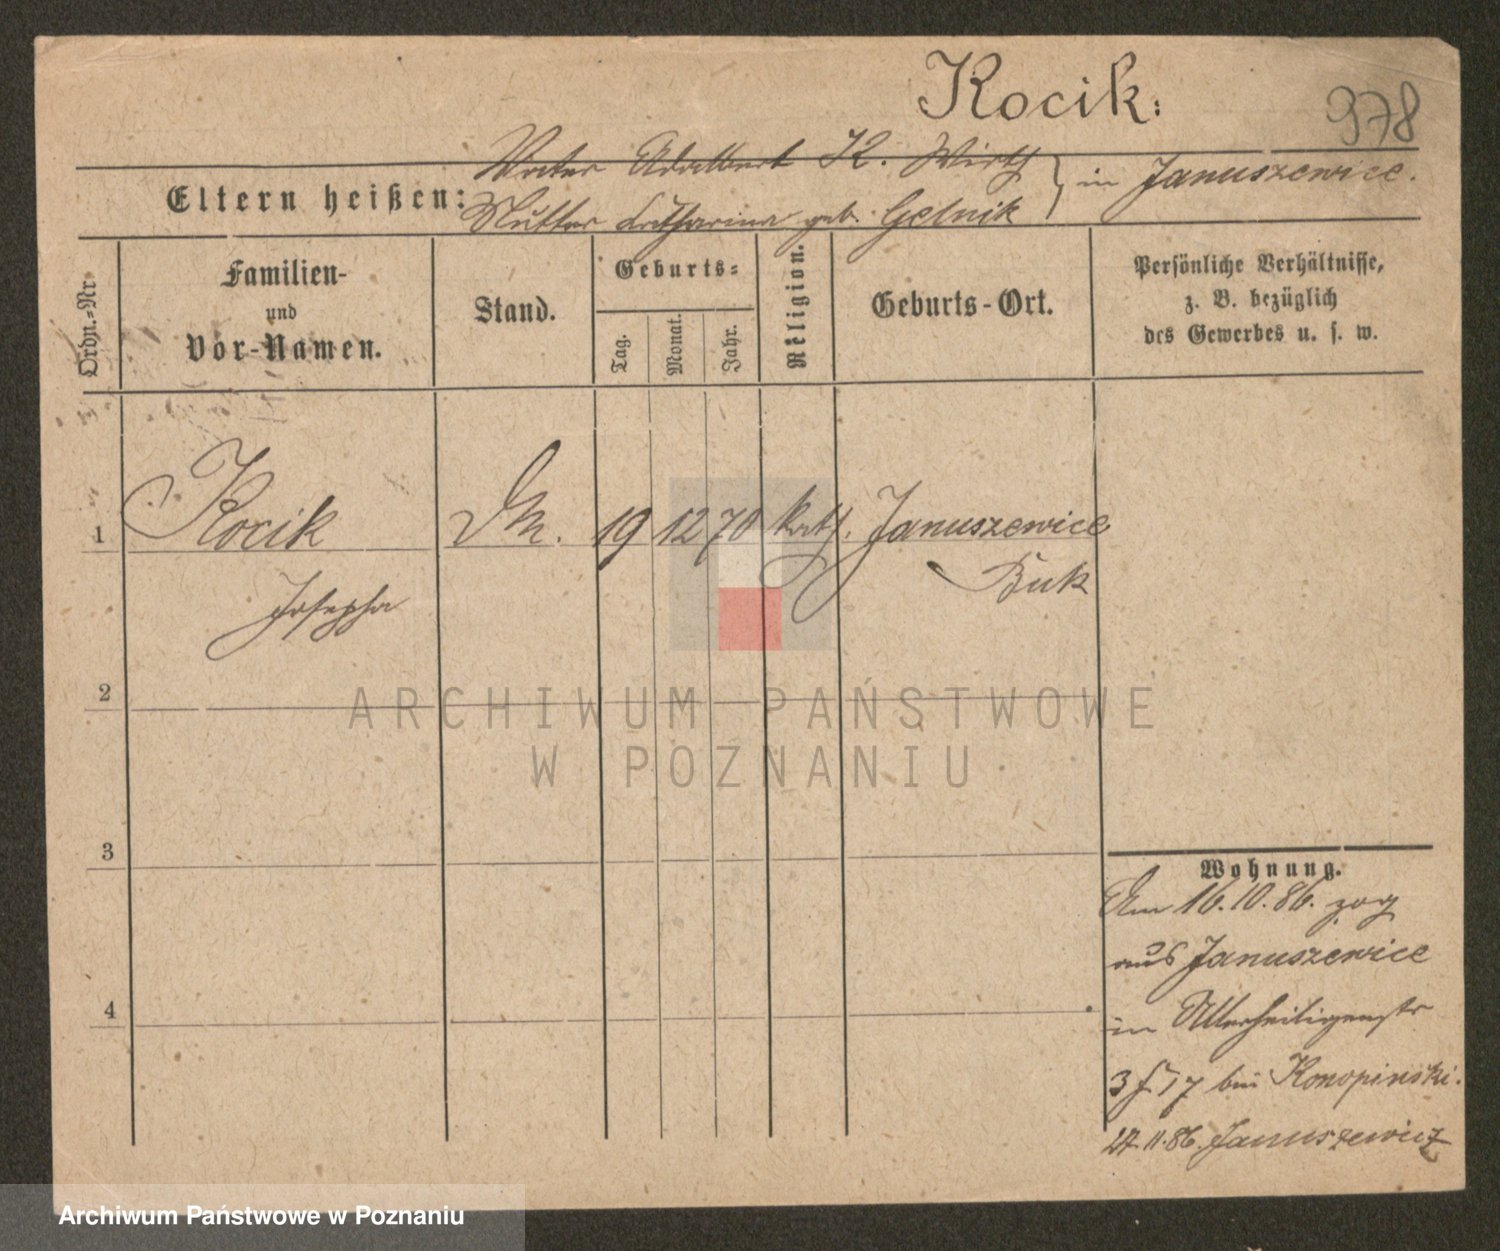 Kocik.
978
Vater Adalbert K. Wirth
Eltern heißen:
in Januszewice.
Mutter Catharina geb. Gelnik
Ordn.-Nr.
Familien-
und
Vor-Namen.
Stand.
Geburts-
Tag.
Monat.
Jahr.
Religion.
Geburts-Ort.
Persönliche Verhältnisse,
z. B. bezüglich
des Gewerbes u. s. w.
1 Kocik 19 12 70 kath. Januszewice
Josepha Buk
2
ARCHIWUM PAŃSTWOWE
W POZNANIU
3
4
Wohnung.
Am 16.10.86. zog
aus Januszewice
in Allerheiligenstr
3 bei Konopinski.
Januszewicz
Archiwum Państwowe w Poznaniu